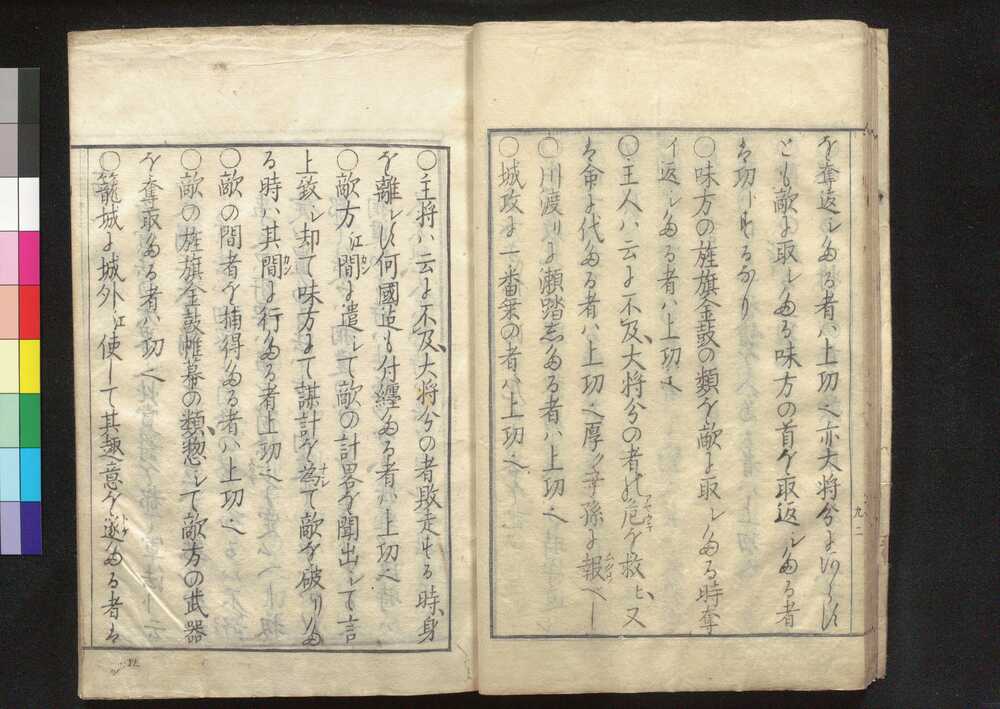 を奪返しゐる者ハ上功也亦大将分よらす
とも敵に取しゐる味方の首を取返しゐる者
は功とするなり
○味方の旌旗金鼓の類を敵に取しゐる時奪
イ返しゐる者ハ上功也
○主人ハ云に不及大将分の者の危を救ひ又
は命に代ゐる者ハ上功也厚く子孫に報べし
○川渡りに瀬踏志ゐる者ハ上功也
○城攻に一番乗の者ハ上功也
九二
○主将ハ云に不及大将分の者敗走する時身
を離しす何國迄も付纏ゐる者ハ上功也
○敵方江間に遣して敵の計畧を聞出して言
上致し却て味方にて謀計を為て敵を破りゐ
る時ハ其間に行ゐる者上功也
○敵の間者を捕得ゐる者ハ上功也
○敵の旌旗金鼓帷幕の類惣して敵方の武器
を奪取ゐる者ハ功也
○籠城に城外江使して其趣意を遂ゐる者は